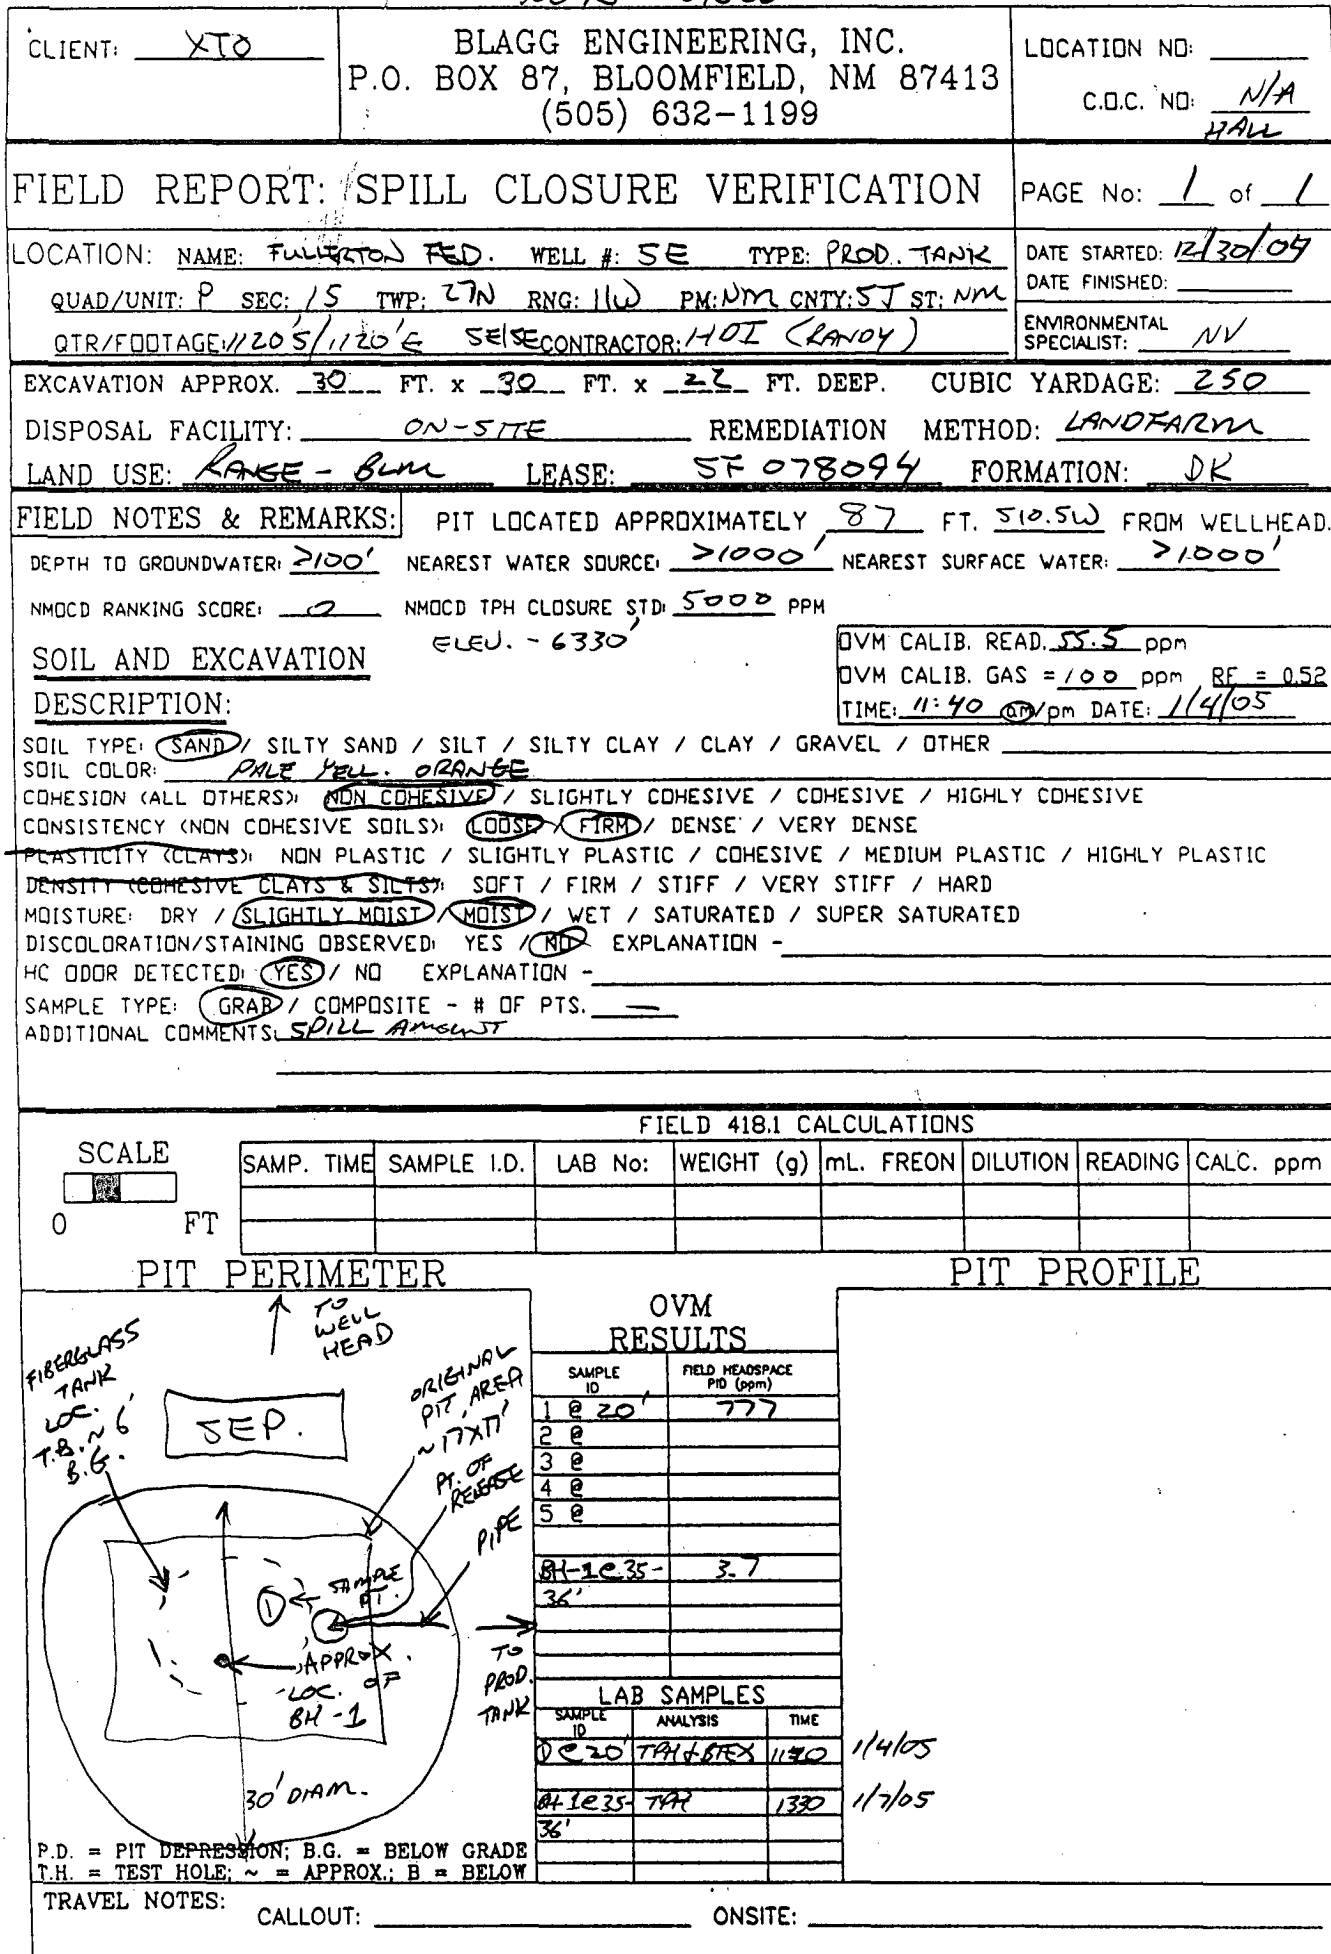 CLIENT: XTO
BLAGG ENGINEERING, INC.
P.O. BOX 87, BLOOMFIELD, NM 87413
(505) 632-1199
LOCATION NO:
C.O.C. NO: N/A
HALL
FIELD REPORT: SPILL CLOSURE VERIFICATION
PAGE No: 1 of 1
LOCATION: NAME: FULLERTON FED. WELL #: 5E TYPE: PROD. TANK
QUAD/UNIT: P SEC: 15 TWP: 27N RNG: 11W PM: NM CNTY: SJ ST: NM
QTR/FOOTAGE: 1120'S/1120'E SE/SE CONTRACTOR: HDI (RANDY)
DATE STARTED: 12/30/04
DATE FINISHED:
ENVIRONMENTAL
SPECIALIST: NV
EXCAVATION APPROX. 30 FT. x 30 FT. x 22 FT. DEEP. CUBIC YARDAGE: 250
DISPOSAL FACILITY: ON-SITE REMEDIATION METHOD: LANDFARM
LAND USE: RANGE - BLM LEASE: SF 078094 FORMATION: DK
FIELD NOTES & REMARKS: PIT LOCATED APPROXIMATELY 87 FT. S10.5W FROM WELLHEAD.
DEPTH TO GROUNDWATER: >100' NEAREST WATER SOURCE: >1000' NEAREST SURFACE WATER: >1000'
NMOCD RANKING SCORE: 0 NMOCD TPH CLOSURE STD: 5000 PPM
ELEV. - 6330'
SOIL AND EXCAVATION
DESCRIPTION:
OVM CALIB. READ. 55.5 ppm
OVM CALIB. GAS = 100 ppm RF = 0.52
TIME: 11:40 am/pm DATE: 1/4/05
SOIL TYPE: SAND / SILTY SAND / SILT / SILTY CLAY / CLAY / GRAVEL / OTHER
SOIL COLOR: PALE YELL. ORANGE
COHESION (ALL OTHERS): NON COHESIVE / SLIGHTLY COHESIVE / COHESIVE / HIGHLY COHESIVE
CONSISTENCY (NON COHESIVE SOILS): LOOSE / FIRM / DENSE / VERY DENSE
PLASTICITY (CLAYS): NON PLASTIC / SLIGHTLY PLASTIC / COHESIVE / MEDIUM PLASTIC / HIGHLY PLASTIC
DENSITY (COHESIVE CLAYS & SILTS): SOFT / FIRM / STIFF / VERY STIFF / HARD
MOISTURE: DRY / SLIGHTLY MOIST / MOIST / WET / SATURATED / SUPER SATURATED
DISCOLORATION/STAINING OBSERVED: YES / NO EXPLANATION -
HC ODOR DETECTED: YES / NO EXPLANATION -
SAMPLE TYPE: GRAB / COMPOSITE - # OF PTS. —
ADDITIONAL COMMENTS: SPILL AMOUNT
FIELD 418.1 CALCULATIONS
SCALE
0 FT
SAMP. TIME SAMPLE I.D. LAB No: WEIGHT (g) mL. FREON DILUTION READING CALC. ppm
PIT PERIMETER
PIT PROFILE
TO
WELL
HEAD
FIBERGLASS
TANK
LOC.
T.B. ~ 6'
B.G.
SEP.
ORIGINAL
PIT AREA
~17X17'
PT. OF
RELEASE
PIPE
1
SAMPLE
PT.
APPROX.
LOC. OF
BH-1
TO
PROD.
TANK
30' DIAM.
OVM
RESULTS
SAMPLE ID FIELD HEADSPACE PID (ppm)
1 @ 20' 777
2 @
3 @
4 @
5 @
BH-1@35- 3.7
36'
LAB SAMPLES
SAMPLE ID ANALYSIS TIME
1@20' TPH & BTEX 1120 1/4/05
BH-1@35- TPH 1330 1/7/05
36'
P.D. = PIT DEPRESSION; B.G. = BELOW GRADE
T.H. = TEST HOLE; ~ = APPROX.; B = BELOW
TRAVEL NOTES: CALLOUT: ONSITE: